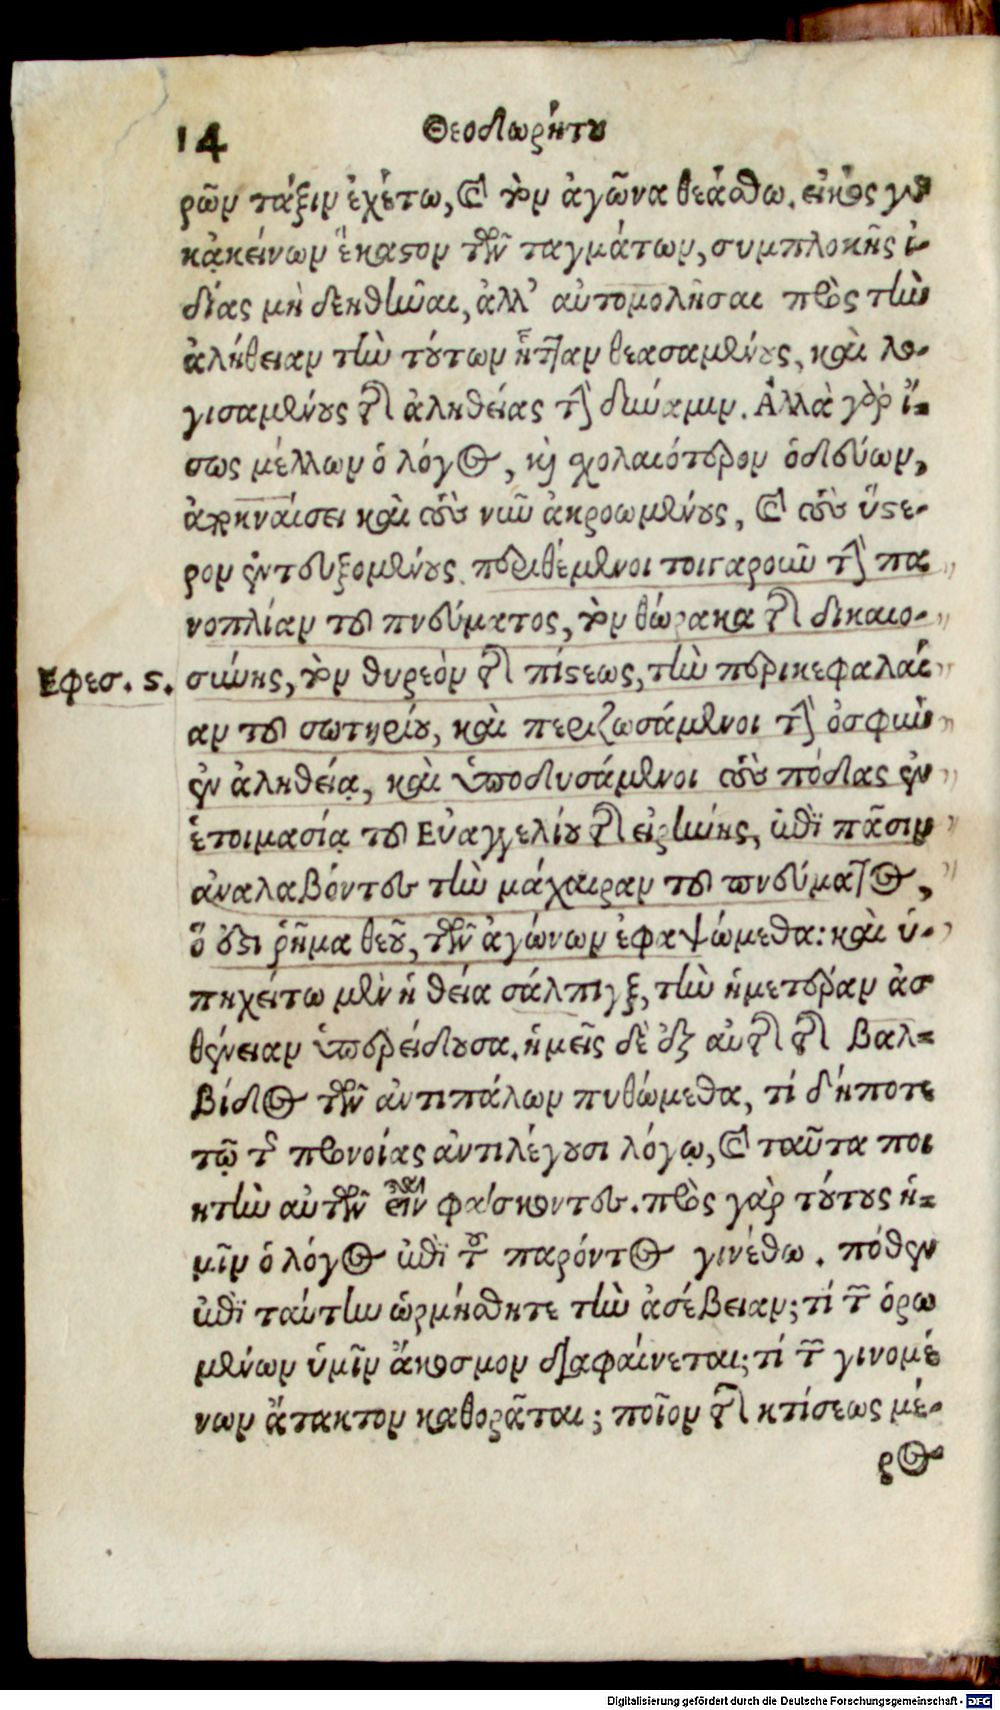 14
Θεοδωρήτου
ρῶν τάξιν ἐχέτω, καὶ τὸν ἀγῶνα θεάσθω. εἰκὸς γὰρ
κᾀκείνων ἕκαστον τῶν ταγμάτων, συμπλοκῆς ἰ-
δίας μὴ δεηθῆναι, ἀλλ' αὐτομολῆσαι πρὸς τὴν
ἀλήθειαν τὴν τούτων ἧτταν θεασαμένους, καὶ λο-
γισαμένους τῆς ἀληθείας τὴν δύναμιν. Ἀλλὰ γὰρ ἴ-
σως μέλλων ὁ λόγος, καὶ σχολαιότερον ὁδεύων,
ἀποκναίσει καὶ τοὺς νῦν ἀκροωμένους, καὶ τοὺς ὕστε-
ρον ἐντευξομένους. περιθέμενοι τοιγαροῦν τὴν πα
νοπλίαν τοῦ πνεύματος, τὸν θώρακα τῆς δικαιο-
Εφεσ. ς. σύνης, τὸν θυρεὸν τῆς πίστεως, τὴν περικεφαλαί
αν τοῦ σωτηρίου, καὶ περιζωσάμενοι τὴν ὀσφὺν
ἐν ἀληθείᾳ, καὶ ὑποδυσάμενοι τοὺς πόδας ἐν
ἑτοιμασίᾳ τοῦ Εὐαγγελίου τῆς εἰρήνης, ἐπὶ πᾶσιν
ἀναλαβόντες τὴν μάχαιραν τοῦ πνεύματος,
ὅ ἐστι ῥῆμα θεοῦ, τῶν ἀγώνων ἐφαψώμεθα: καὶ ὑ-
πηχείτω μὲν ἡ θεία σάλπιγξ, τὴν ἡμετέραν ἀσ
θένειαν ὑπερείδουσα. ἡμεῖς δὲ ἐξ αὐτῆς τῆς βαλ-
βίδος τῶν ἀντιπάλων πυθώμεθα, τί δήποτε
τῷ τῆς προνοίας ἀντιλέγουσι λόγῳ, καὶ ταῦτα ποι
ητὴν αὐτῶν εἶναι φάσκοντες. πρὸς γὰρ τούτους ἡ-
μῖν ὁ λόγος ἐπὶ τοῦ παρόντος γινέσθω. πόθεν
ἐπὶ ταύτην ὡρμήσθητε τὴν ἀσέβειαν; τί τῶν ὁρω
μένων ὑμῖν ἄκοσμον διαφαίνεται; τί τῶν γινομέ
νων ἄτακτον καθορᾶται; ποῖον τῆς κτίσεως μέ-
ρος
Digitalisierung gefördert durch die Deutsche Forschungsgemeinschaft - DFG